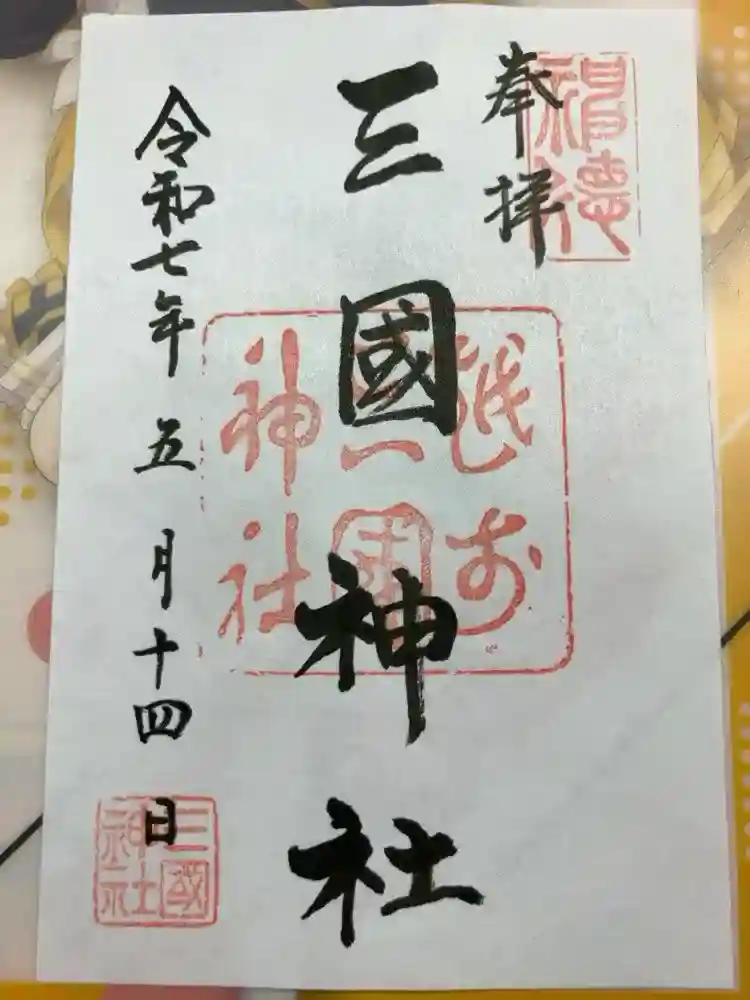 奉拝
三國神社
令和七年五月十四日
越前
三國
神社
三國
神社